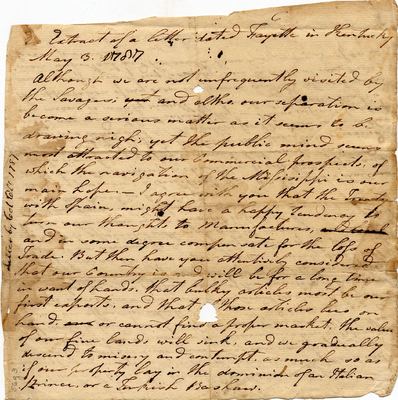 Extract of a letter dated Fayette in Kentucky
May 3. 1787
Although we are not unfrequently visited by
the Savages, and altho. our separation is
become a serious matter as it seems to be
drawing nigh, yet the public mind seems
most attracted to our Commercial prospects, of
which the navigation of the Mississippi is our
main hope — I agree with you that the Treaty
with Spain, might have a happy tendency to
turn our thoughts to Manufactures,
and in some degree compensate for the loss of
Trade. But then have you attentively considered
that our Country is and will be for a long time
in want of hands, that bulky articles must be our
first exports, and that if those articles lies on
hand, or cannot find a proper market, the value
of our fine lands will sink, and we gradually
descend to misery and contempt, as much so as
if our property lay in the dominion of an Italian
Prince, or a Turkish Bashaw.